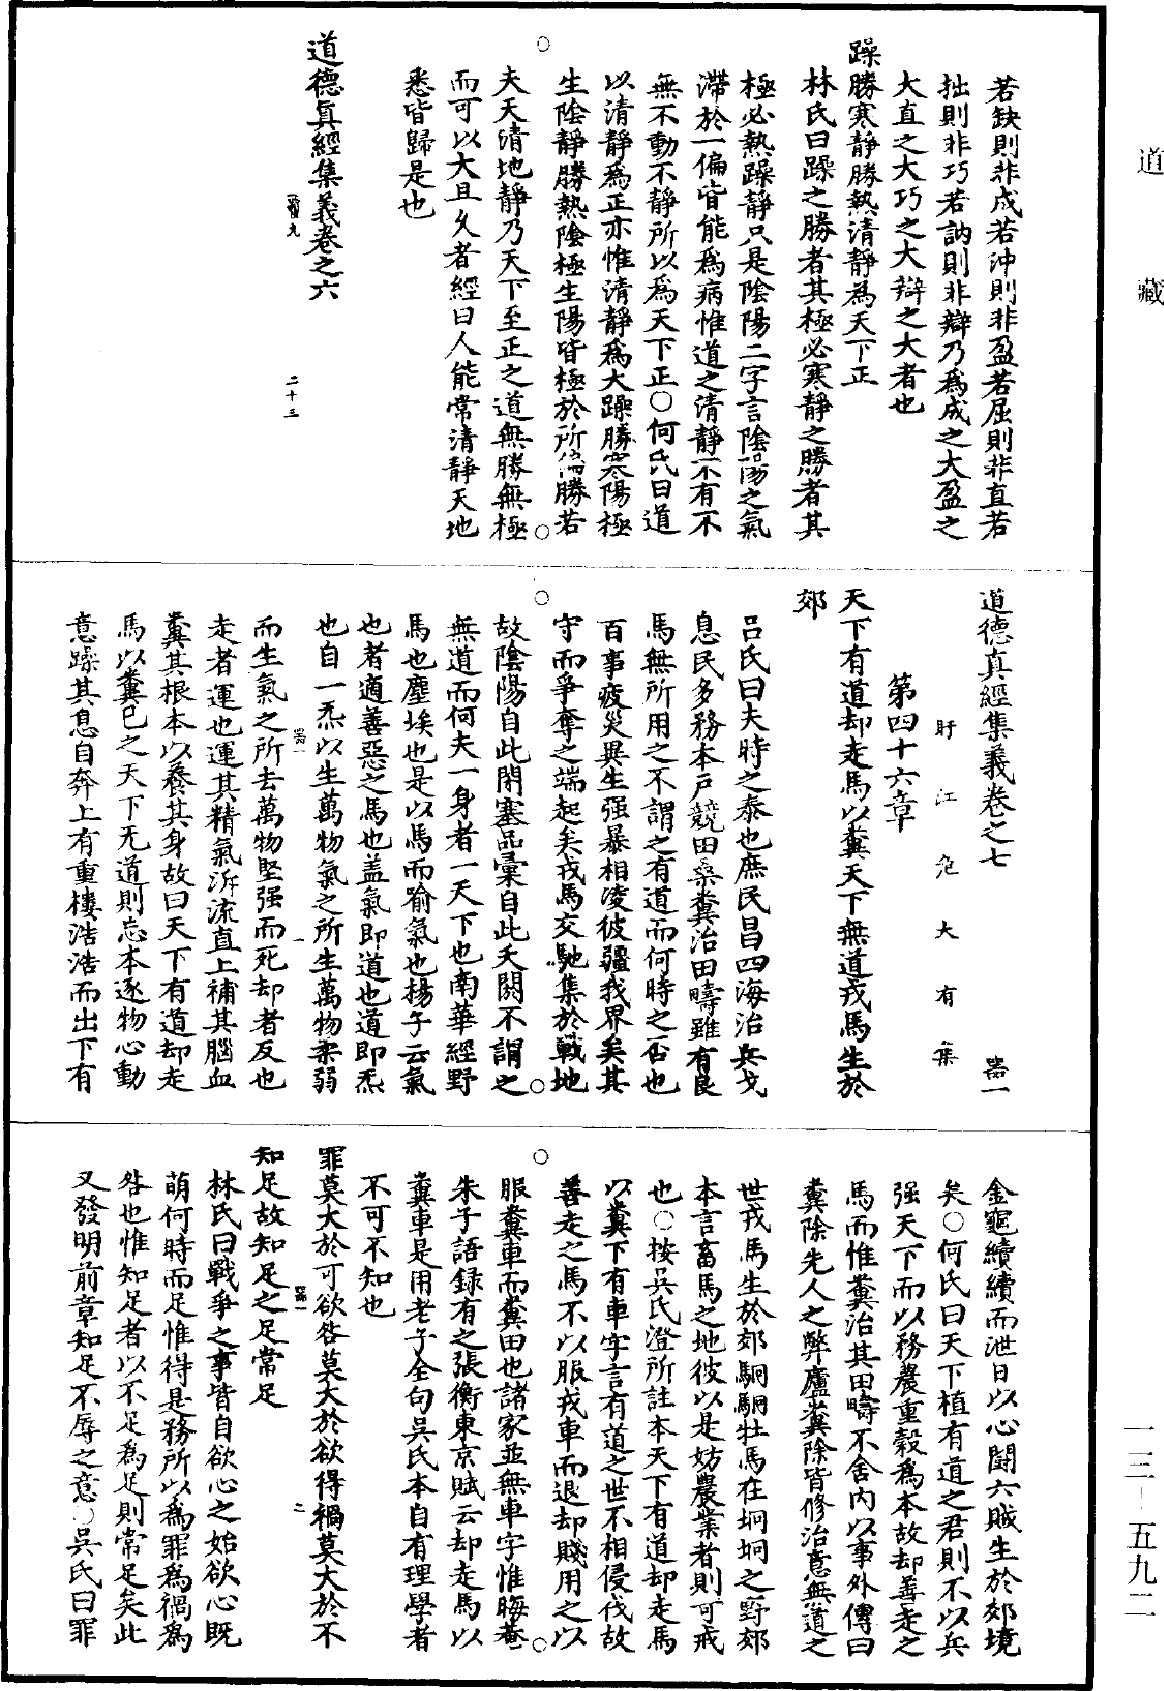 道藏
若缺則非成若沖則非盈若屈則非直若
拙則非巧若訥則非辯乃爲成之大盈之
大直之大巧之大辯之大者也
躁勝寒靜勝熱清靜為天下正
林氏曰躁之勝者其極必寒靜之勝者其
極必熱躁靜只是陰陽二字言陰陽之氣
滯於一偏皆能爲病惟道之清靜不有不
無不動不靜所以爲天下正○何氏曰道
以清靜爲正亦惟清靜爲大躁勝寒陽極
生陰靜勝熱陰極生陽皆極於所偏勝若
夫天清地靜乃天下至正之道無勝無極
而可以大且久者經曰人能常清靜天地
悉皆歸是也
道德眞經集義卷之六
二十三
道德真經集義卷之七
器一
盱江危大有集
第四十六章
天下有道却走馬以糞天下無道戎馬生於
郊
呂氏曰夫時之泰也庶民昌四海治兵戈
息民多務本戶競田桑糞治田疇雖有良
馬無所用之不謂之有道而何時之否也
百事疲災異生强暴相凌彼疆我界矣其
守而爭奪之端起矣戎馬交馳集於戰地
故陰陽自此閉塞品彙自此夭閼不謂之
無道而何夫一身者一天下也南華經野
馬也塵埃也是以馬而喻氣也楊子云氣
也者適善惡之馬也盖氣即道也道即炁
也自一炁以生萬物氣之所生萬物柔弱
器一
一
而生氣之所去萬物堅强而死却者反也
走者運也運其精氣泝流直上補其腦血
糞其根本以養其身故曰天下有道却走
馬以糞已之天下无道則忘本逐物心動
意躁其息自奔上有重樓浩浩而出下有
金龜續續而泄日以心鬪六賊生於郊境
矣○何氏曰天下植有道之君則不以兵
强天下而以務農重穀爲本故却善走之
馬而惟糞治其田疇不舍内以事外傳曰
糞除先人之弊廬糞除皆修治意無道之
世戎馬生於郊駉駉牡馬在坰坰之野郊
本言畜馬之地彼以是妨農業者則可戒
也○按吳氏澄所註本天下有道却走馬
以糞下有車字言有道之世不相侵伐故
善走之馬不以服戎車而退却賤用之以
服糞車而糞田也諸家並無車字惟晦菴
朱子語録有之張衡東京賦云却走馬以
糞車是用老子全句吳氏本自有理學者
不可不知也
罪莫大於可欲咎莫大於欲得禍莫大於不
器一
二
知足故知足之足常足
林氏曰戰爭之事皆自欲心之始欲心既
萌何時而足惟得是務所以爲罪爲禍爲
咎也惟知足者以不足為足則常足矣此
又發明前章知足不辱之意○吳氏曰罪
一三—五九二